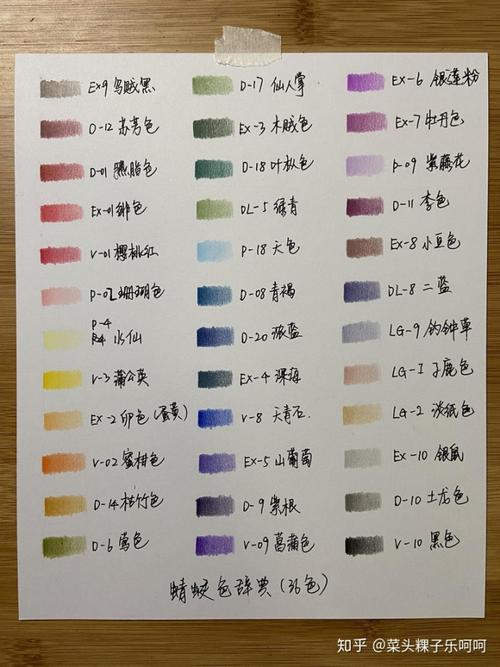 EX9 乌贼黑
D-12 苏芳色
D-01 臙脂色
EX-01 绯色
V-01 樱桃红
P-02 珊瑚色
P-4
水仙
V-3 蒲公英
EX-2 卵色(蛋黄)
V-02 蜜柑色
D-14 枯竹色
D-6 莺色
D-17 仙人掌
EX-3 木贼色
D-18 叶松色
DL-5 绿青
P-18 天色
D-08 青褐
D-20 琉蓝
EX-4 深海
V-8 天青石.
EX-5 山葡萄
D-9 紫根
V-09 菖蒲色
EX-6 银莲粉
EX-7 牡丹色
P-09 紫藤花
D-11 李色
EX-8 小豆色
DL-8 二蓝
LG-9 钓钟草
LG-1 子鹿色
LG-2 淡纸色
EX-10 银鼠
D-10 土龙色
V-10 黑色
蜻蜓色辞典(36色)
知乎 @菜头粿子乐呵呵